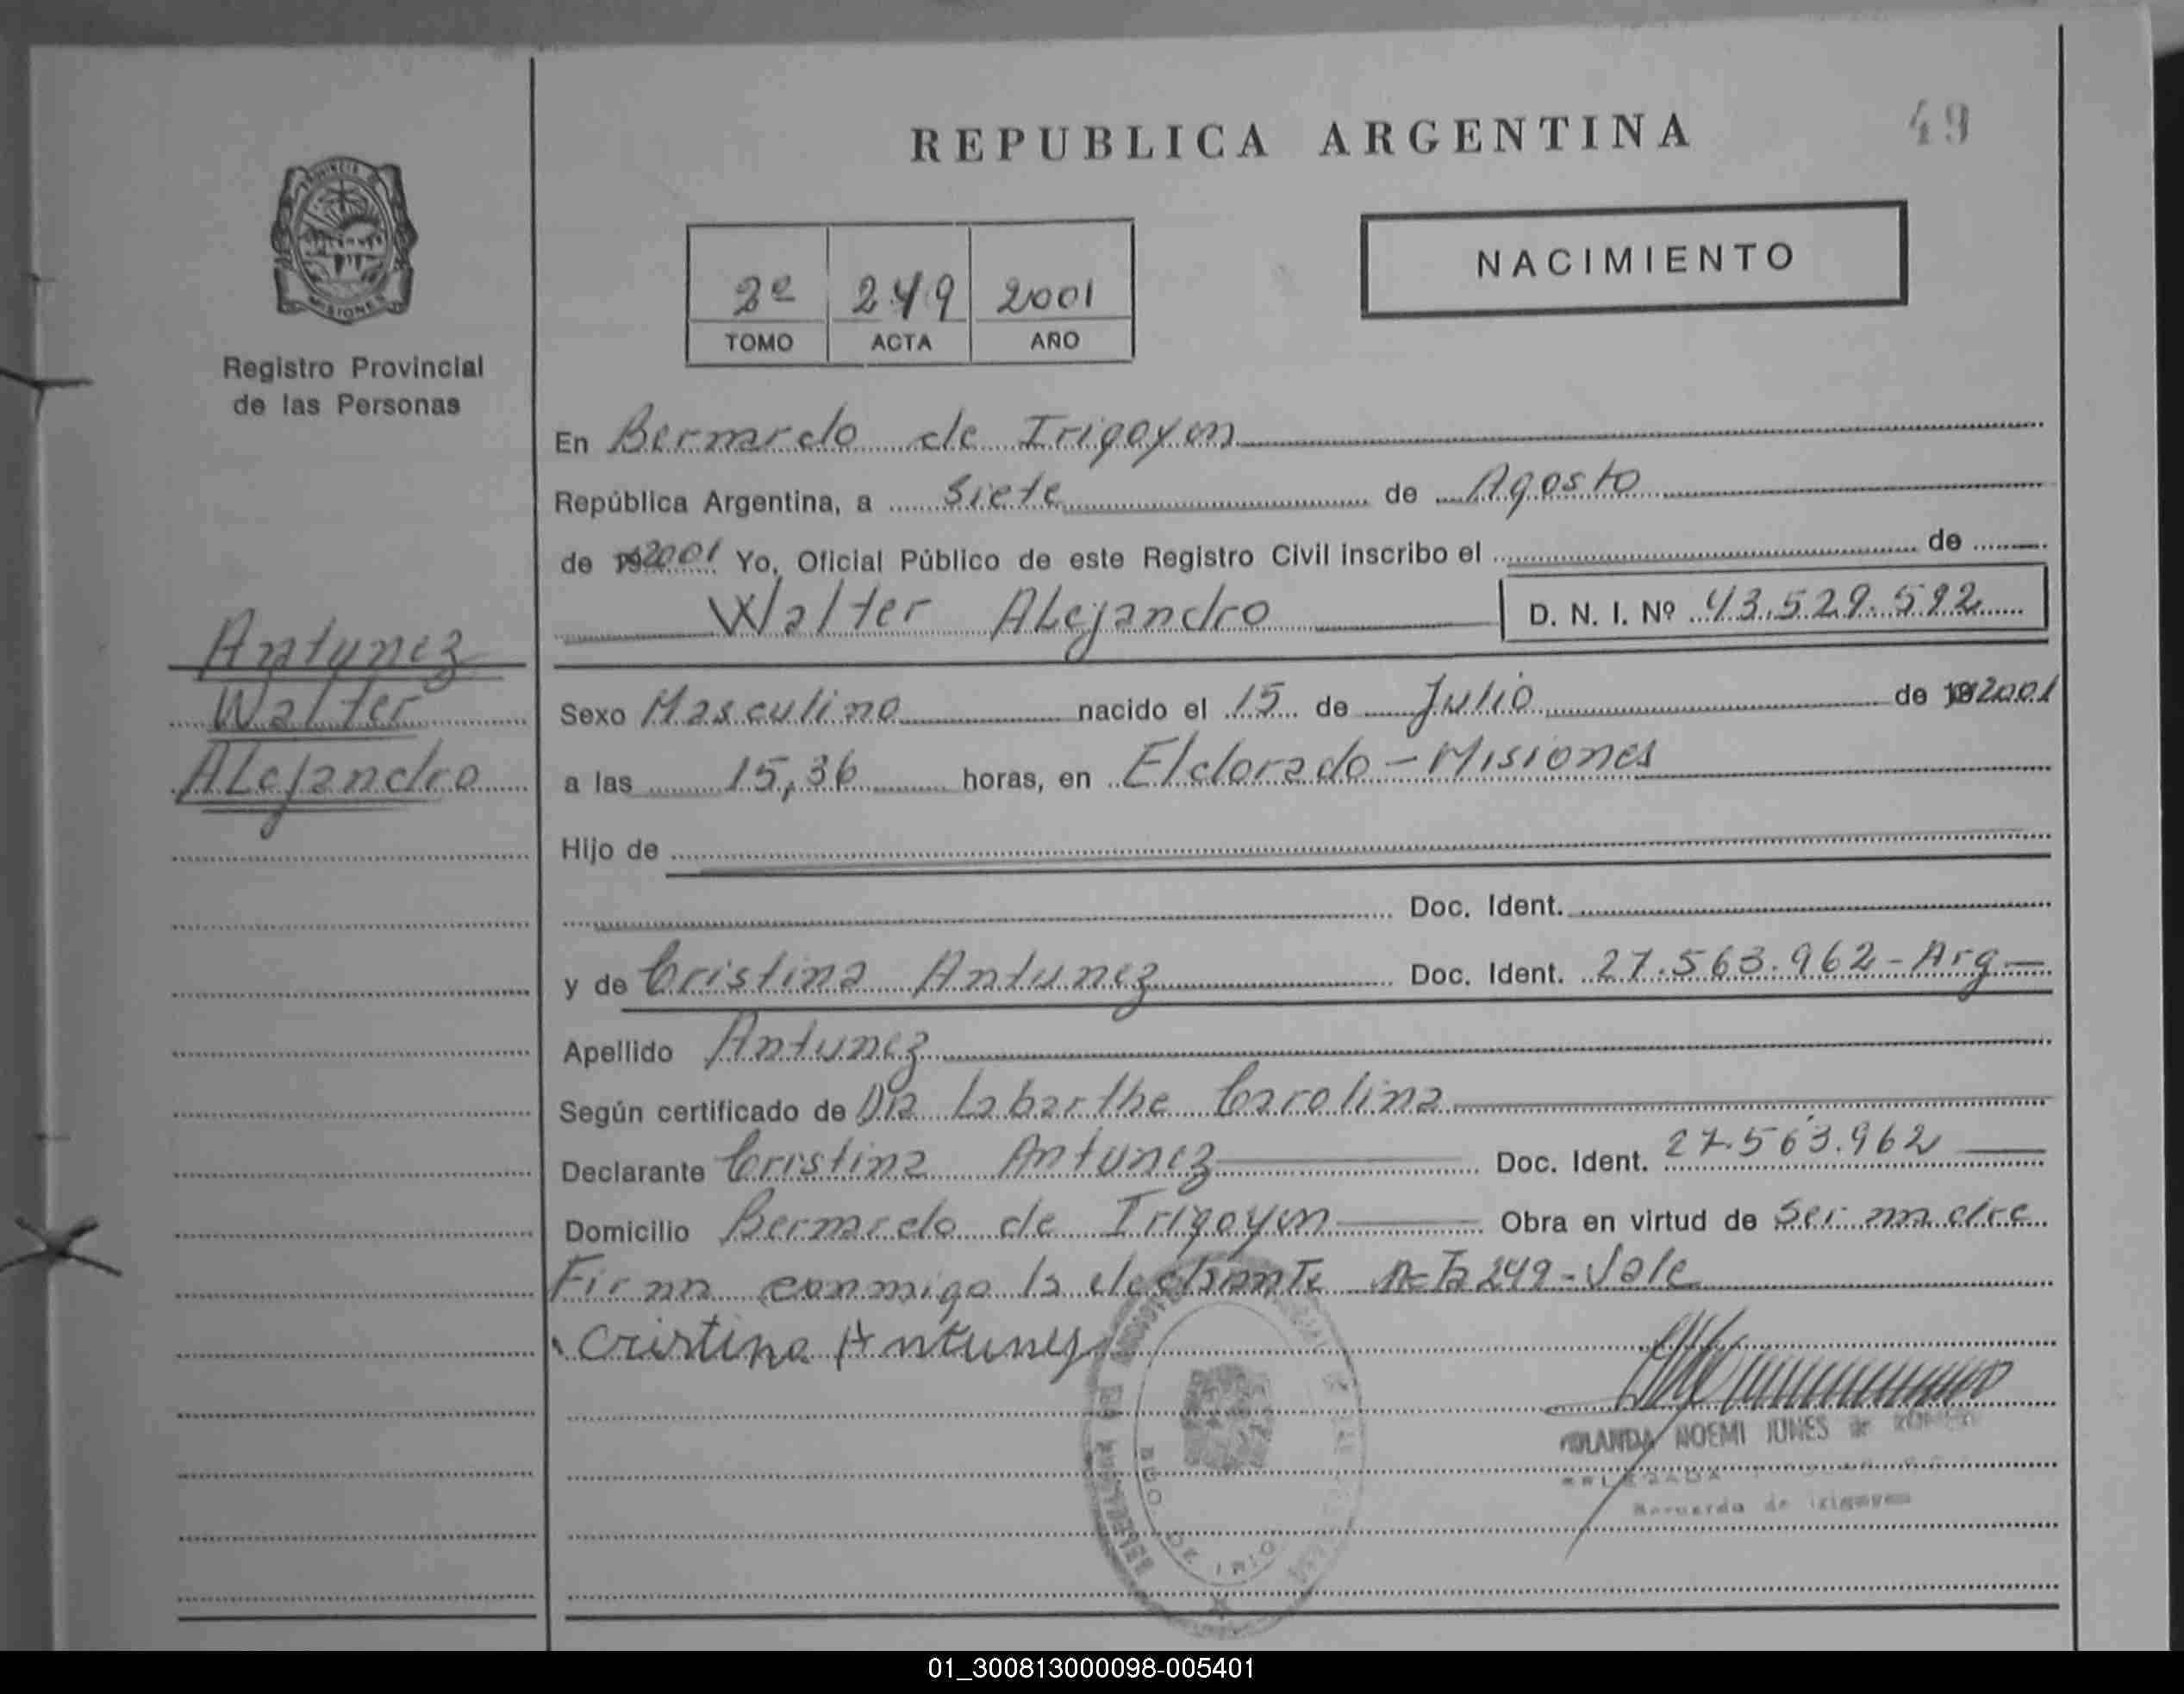 REPUBLICA ARGENTINA
49
NACIMIENTO
2º 249 2001
TOMO ACTA AÑO
PROVINCIA D
MISIONES
Registro Provincial
de las Personas
Antunez
Walter
Alejandro
En Bernardo de Irigoyen
República Argentina, a Siete de Agosto
de 192001 Yo, Oficial Público de este Registro Civil inscribo el de
Walter Alejandro D. N. I. Nº 43.529.592
Sexo Masculino nacido el 15 de Julio de 192001
a las 15,36 horas, en Eldorado - Misiones
Hijo de
Doc. Ident.
y de Cristina Antunez Doc. Ident. 27.563.962 - Arg.
Apellido Antunez
Según certificado de Dra Labarthe Carolina
Declarante Cristina Antunez Doc. Ident. 27.563.962
Domicilio Bernardo de Irigoyen Obra en virtud de Ser madre
Firma conmigo la declarante Acta 249 - Vale
Cristina Antunez
NOEMI JONES de
Bernardo de Irigoyen
01_300813000098-005401